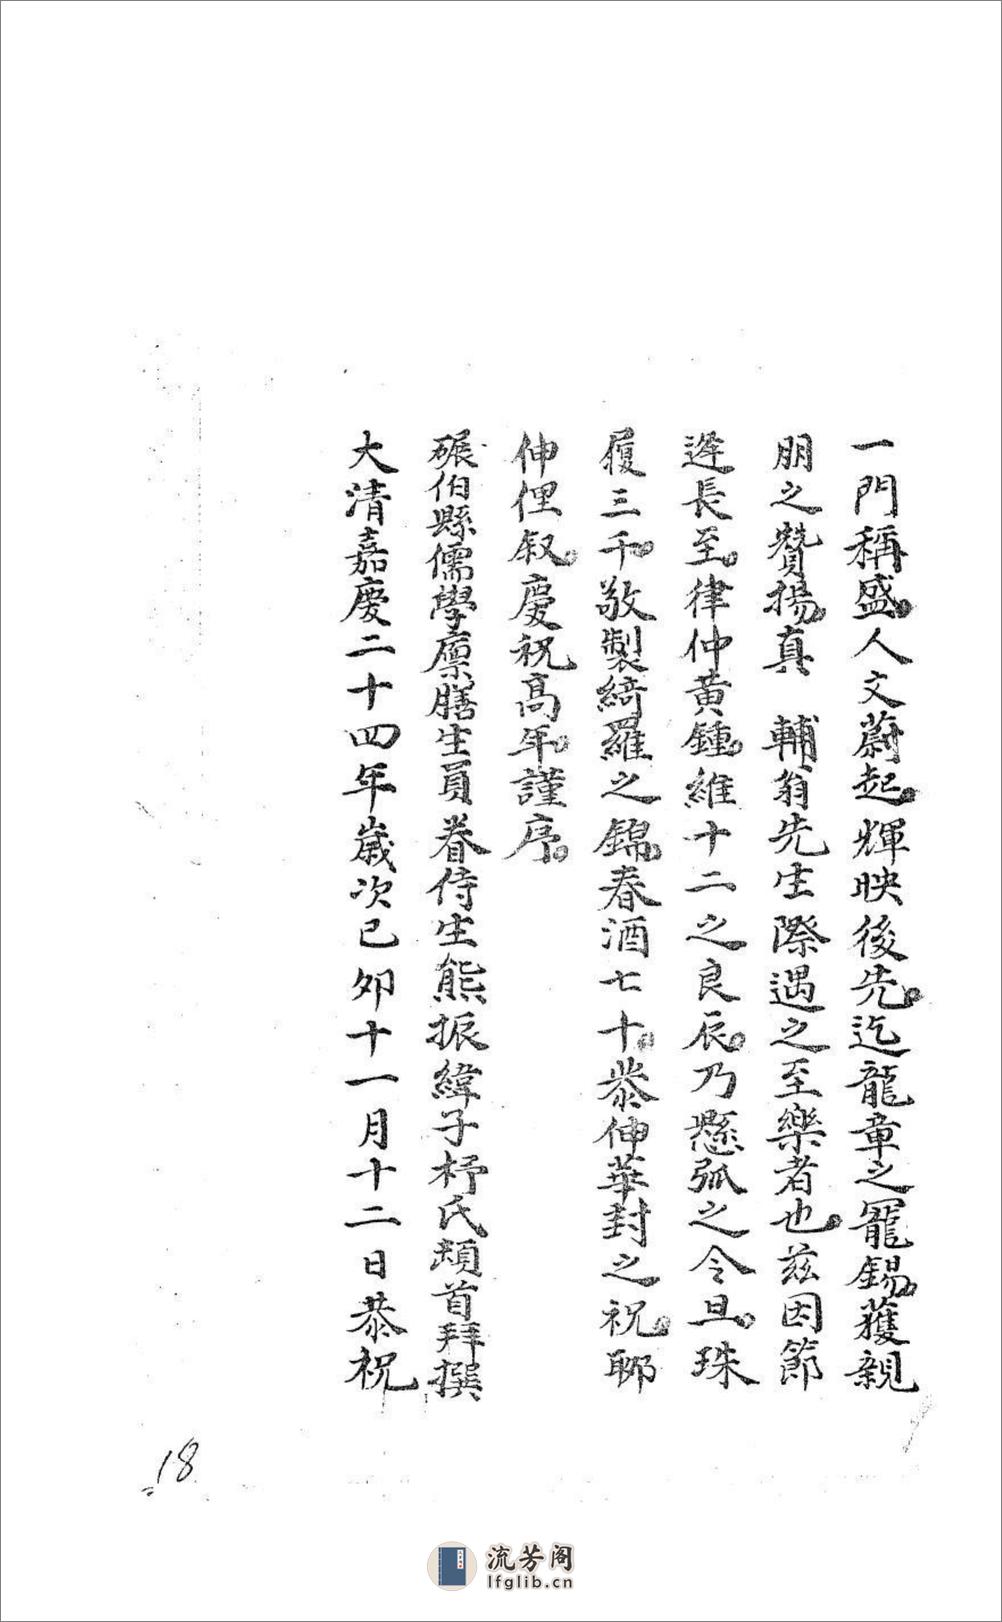 一門稱盛。人文蔚起。輝映後先。迄龍章之寵錫。獲親
朋之贊揚。真　輔翁先生際遇之至樂者也。茲因節
遅長至。律仲黃鍾。維十二之良辰。乃懸弧之令旦。珠
履三千。敬製綺羅之錦。春酒七十。恭伸華封之祝。聊
伸俚叙。慶祝高年。謹序。
碾伯縣儒學廪膳生員眷侍生熊振緯子杼氏頓首拜撰
大清嘉慶二十四年歲次己夘十一月十二日恭祝
18
流芳阁
lfglib.cn